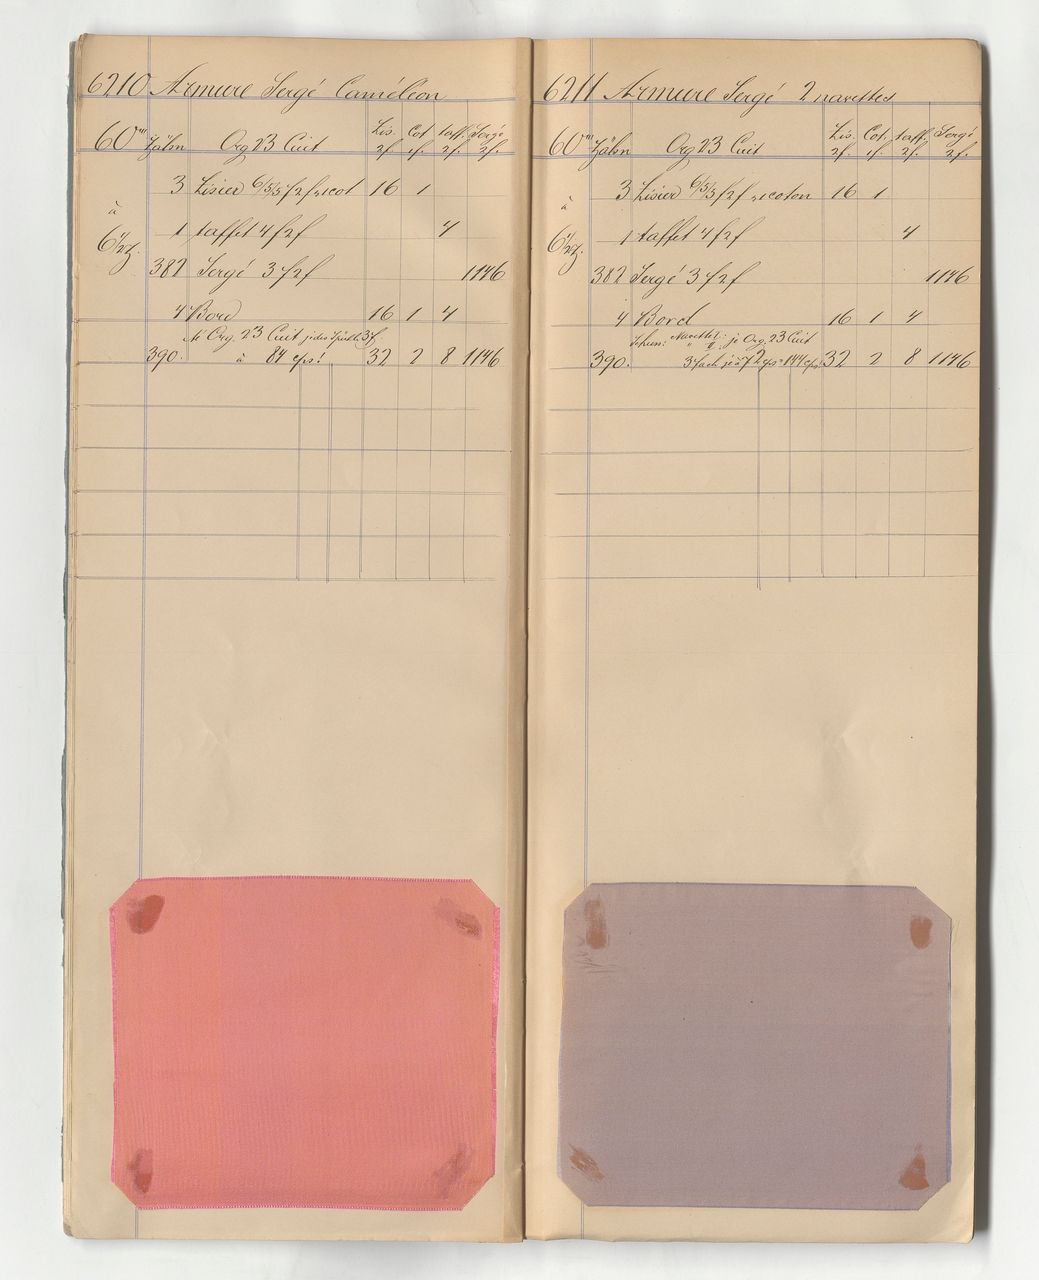 6210 Armure Sergé Caméléon
60 m/m Zähn Org 23 Cuit Lis. 2f. Cot 1f. taff. 2f. Sergé 2f.
à 6 1/2 Z.
3 Lisier 6/5/5 f 2f, 1 cot 16 1
1 taffet 4 f 2f 4
382 Sergé 3 f 2f 1146
4 Bord 16 1 4
Org. 23 Cuit jedes 3f.
390. à 84 cps! 32 2 8 1146
6211 Armure Sergé 2 navettes
60 m/m Zähn Org 23 Cuit Lis. 2f. Cot. 1f. taff. 2f. Sergé 2f.
à 6 1/2 Z.
3 Lisier 6/5/5 f 2f, 1 coton 16 1
1 taffet 4 f 2f 4
382 Sergé 3 f 2f 1146
4 Bord 16 1 4
je Org. 23 Cuit
390. 3fach je à 72 cps = 144 cps. 32 2 8 1146